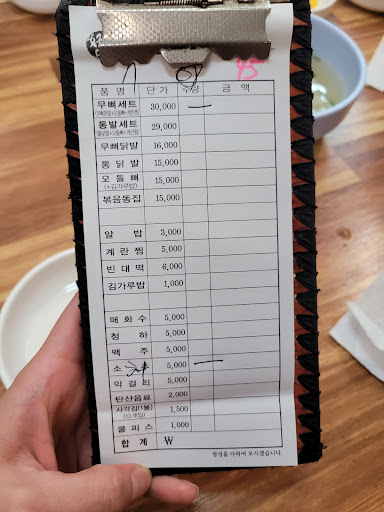 7 01 45
품 명 단 가 수량 금 액
무뼈세트 30,000 一
통발세트 29,000
무뼈닭발 16,000
통 닭 발 15,000
오 돌 뼈 15,000
(+김가루밥)
볶음똥집 15,000
알 밥 3,000
계 란 찜 5,000
빈 대 떡 6,000
김가루밥 1,000
매 화 수 5,000
청 하 5,000
맥 주 5,000
소 주 5,000 一
막 걸 리 5,000
탄산음료 2,000
사각김(1봉) 1,500
(10개입)
쿨 피 스 1,000
합 계 ₩
정성을 다하여 모시겠습니다.